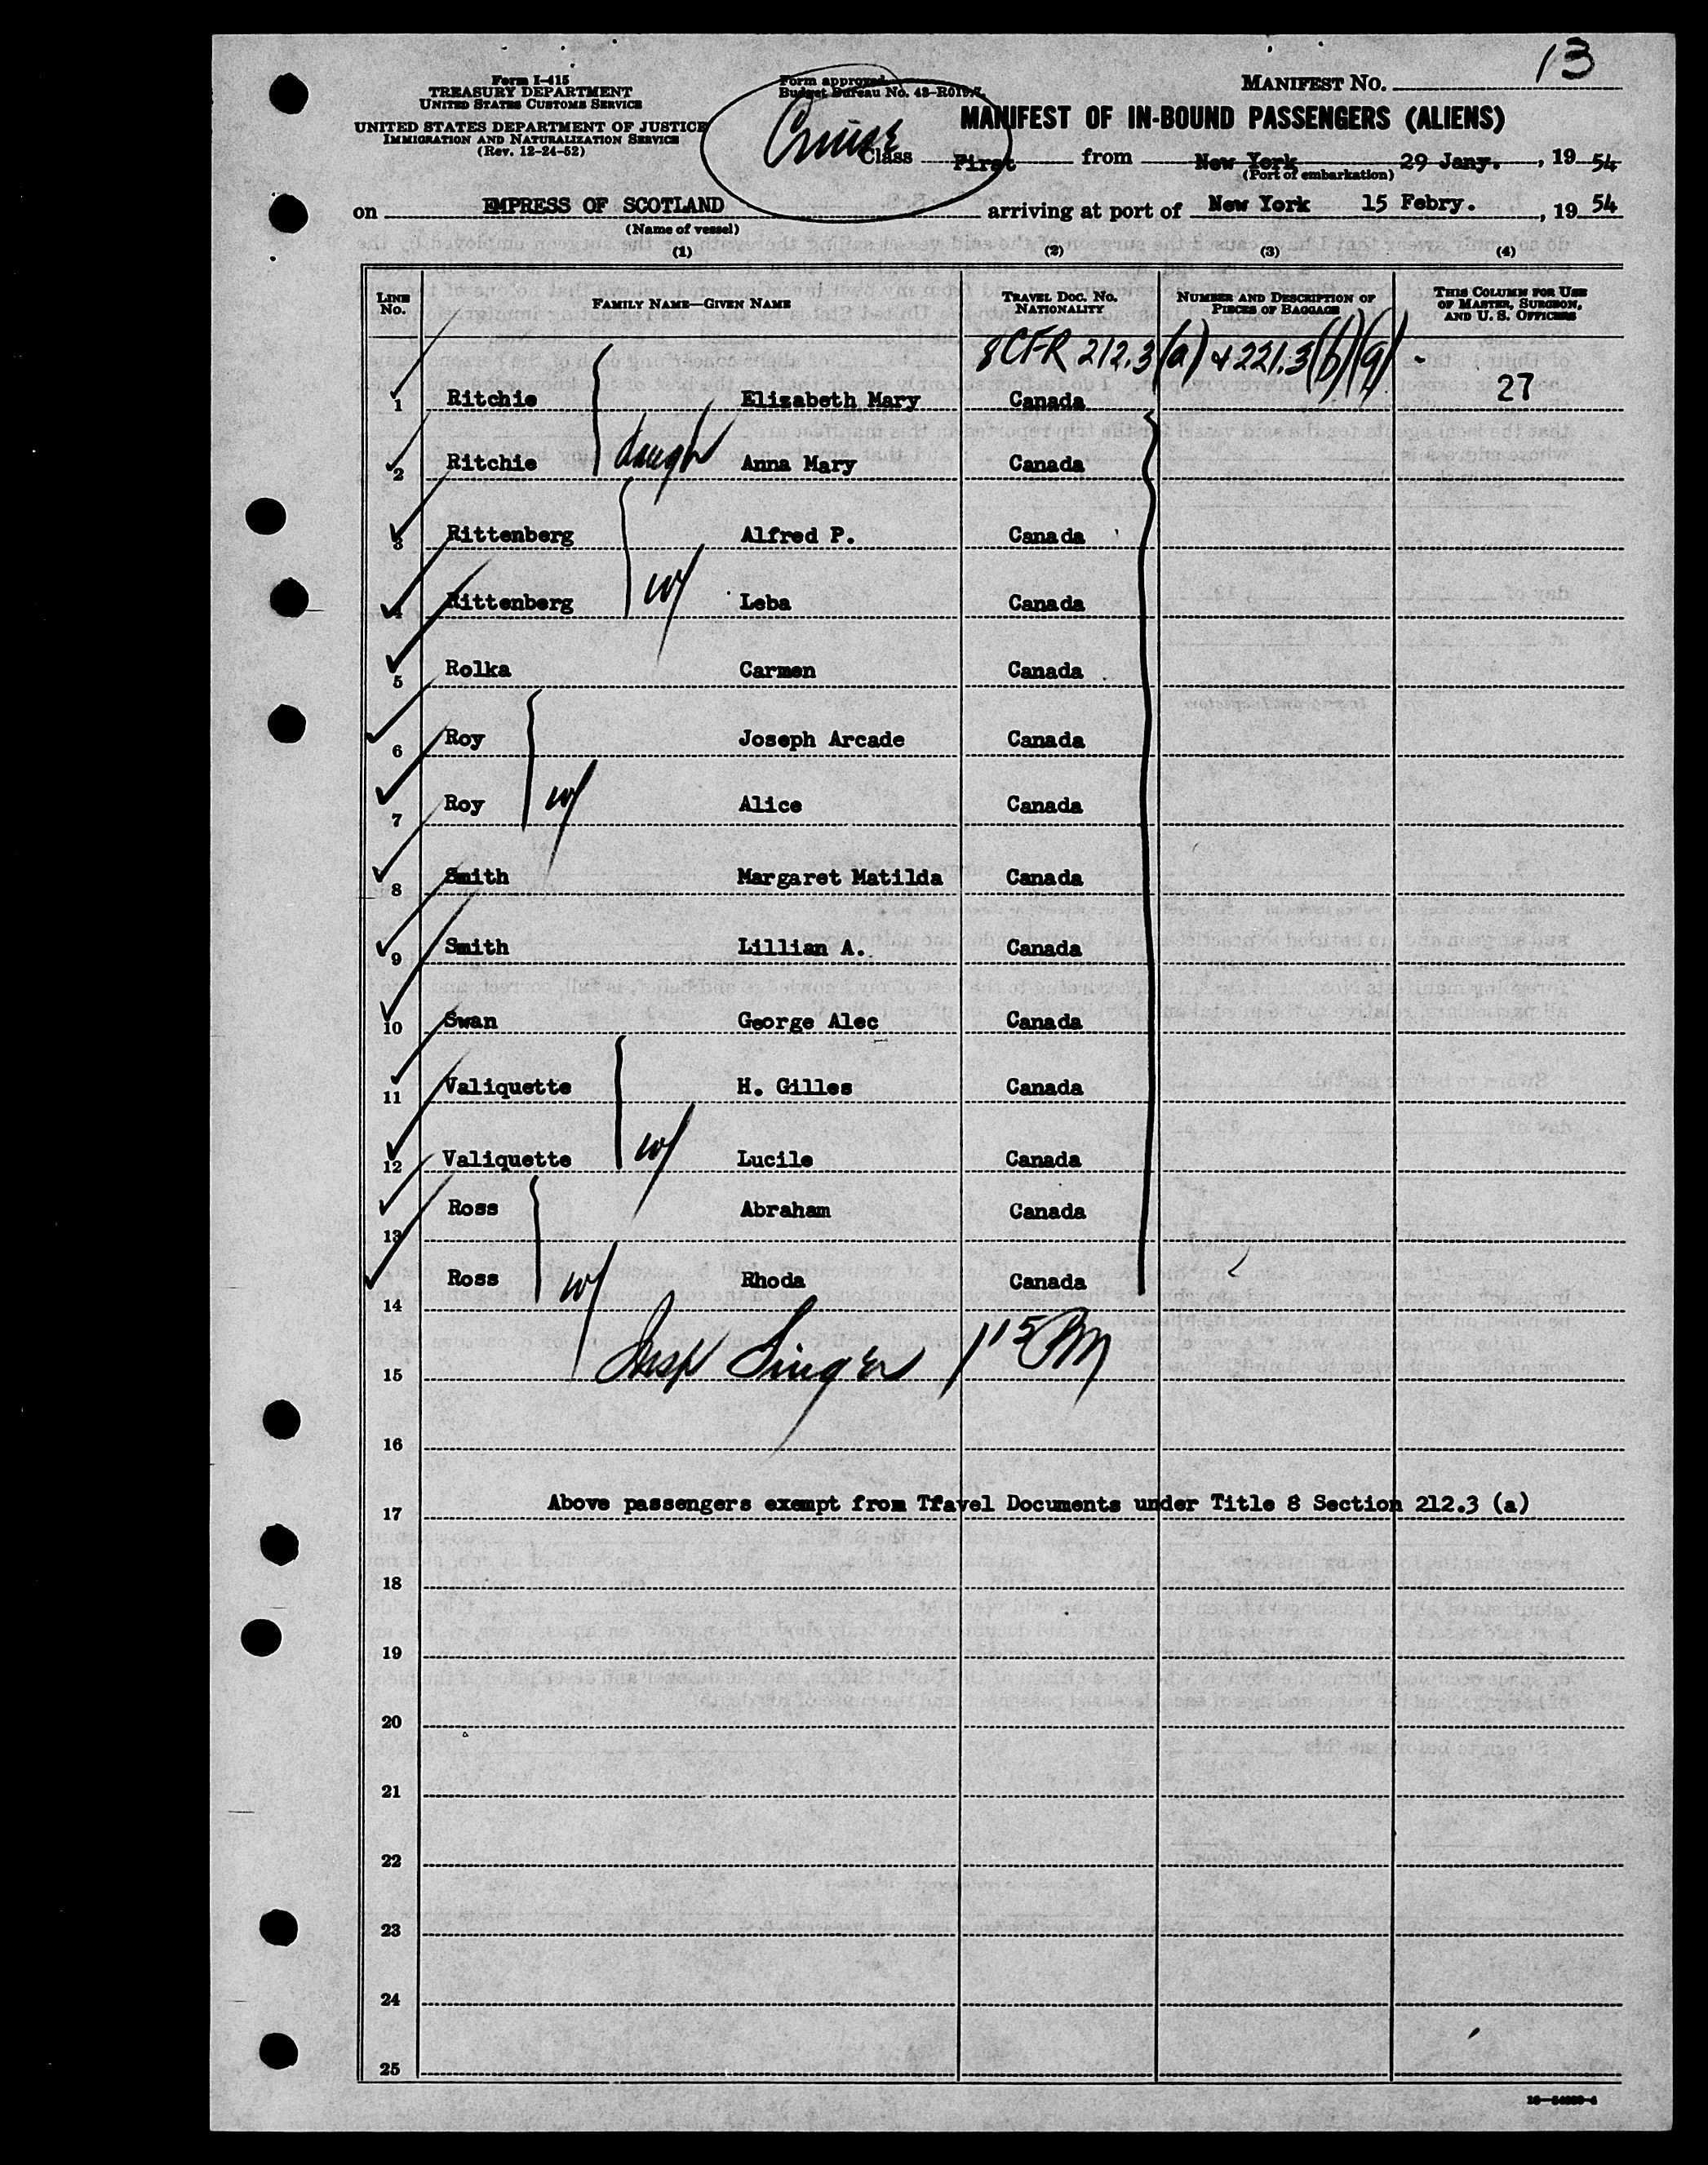 13
Form I-415
TREASURY DEPARTMENT
UNITED STATES CUSTOMS SERVICE
UNITED STATES DEPARTMENT OF JUSTICE
IMMIGRATION AND NATURALIZATION SERVICE
(Rev. 12-24-52)
Form approved.
Budget Bureau No. 43-R019.7.
MANIFEST NO.
MANIFEST OF IN-BOUND PASSENGERS (ALIENS)
Cruise
Class First from New York 29 Jany., 19 54
(Port of embarkation)
on EMPRESS OF SCOTLAND arriving at port of New York 15 Febry., 19 54
(Name of vessel)
(1) (2) (3) (4)
LINE NO. FAMILY NAME—GIVEN NAME TRAVEL DOC. NO. NATIONALITY NUMBER AND DESCRIPTION OF PIECES OF BAGGAGE THIS COLUMN FOR USE OF MASTER, SURGEON, AND U. S. OFFICERS
8 CFR 212.3 (a) & 221.3 (b)(g)
1 Ritchie Elizabeth Mary Canada 27
2 Ritchie daugh Anna Mary Canada
3 Rittenberg Alfred P. Canada
4 Rittenberg w/ Leba Canada
5 Rolka Carmen Canada
6 Roy Joseph Arcade Canada
7 Roy w/ Alice Canada
8 Smith Margaret Matilda Canada
9 Smith Lillian A. Canada
10 Swan George Alec Canada
11 Valiquette H. Gilles Canada
12 Valiquette w/ Lucile Canada
13 Ross Abraham Canada
14 Ross w/ Rhoda Canada
15 Insp Singer 1 15 PM
16
17 Above passengers exempt from Tfavel Documents under Title 8 Section 212.3 (a)
18
19
20
21
22
23
24
25